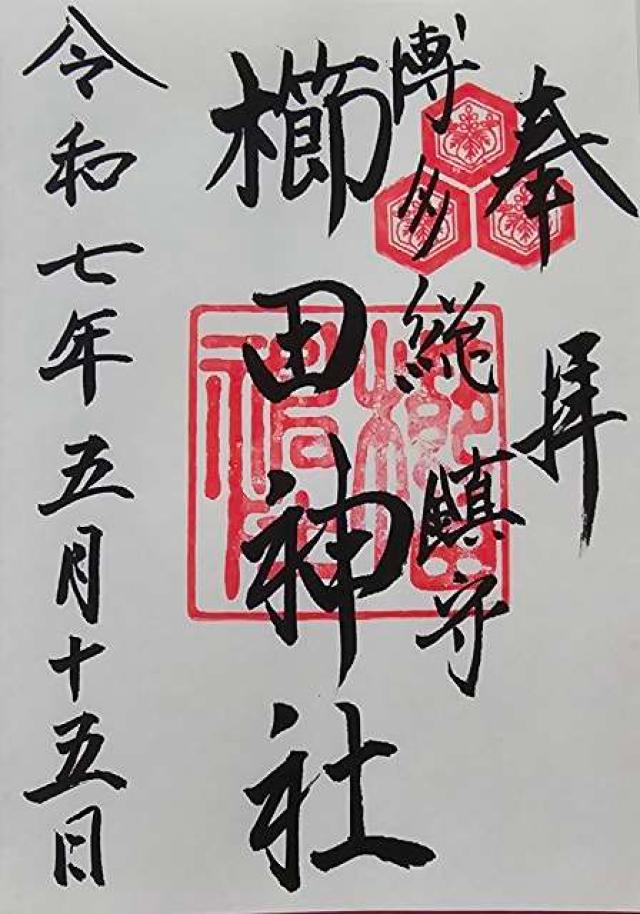 奉拝
博多総鎮守
櫛田神社
令和七年五月十五日